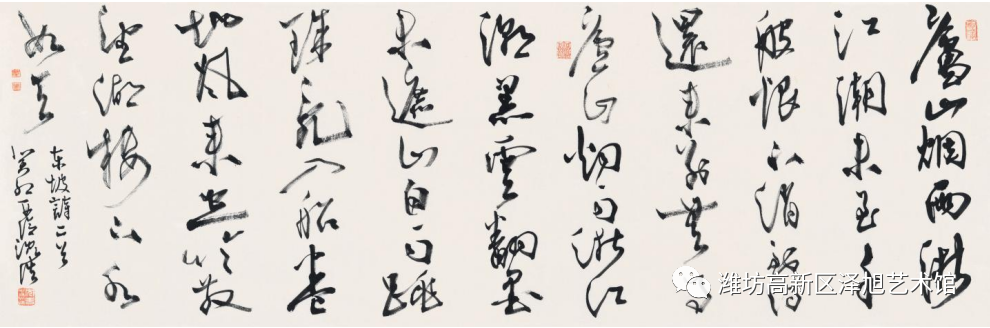 廬山烟雨浙
江潮未至千
般恨不消到得
還来别無事
廬山烟雨浙江
潮黑雲翻墨
未遮山白雨跳
珠亂入船卷
地風来忽吹散
望湖樓下水
如天
东坡詩二首
癸卯
潍坊高新区泽旭艺术馆